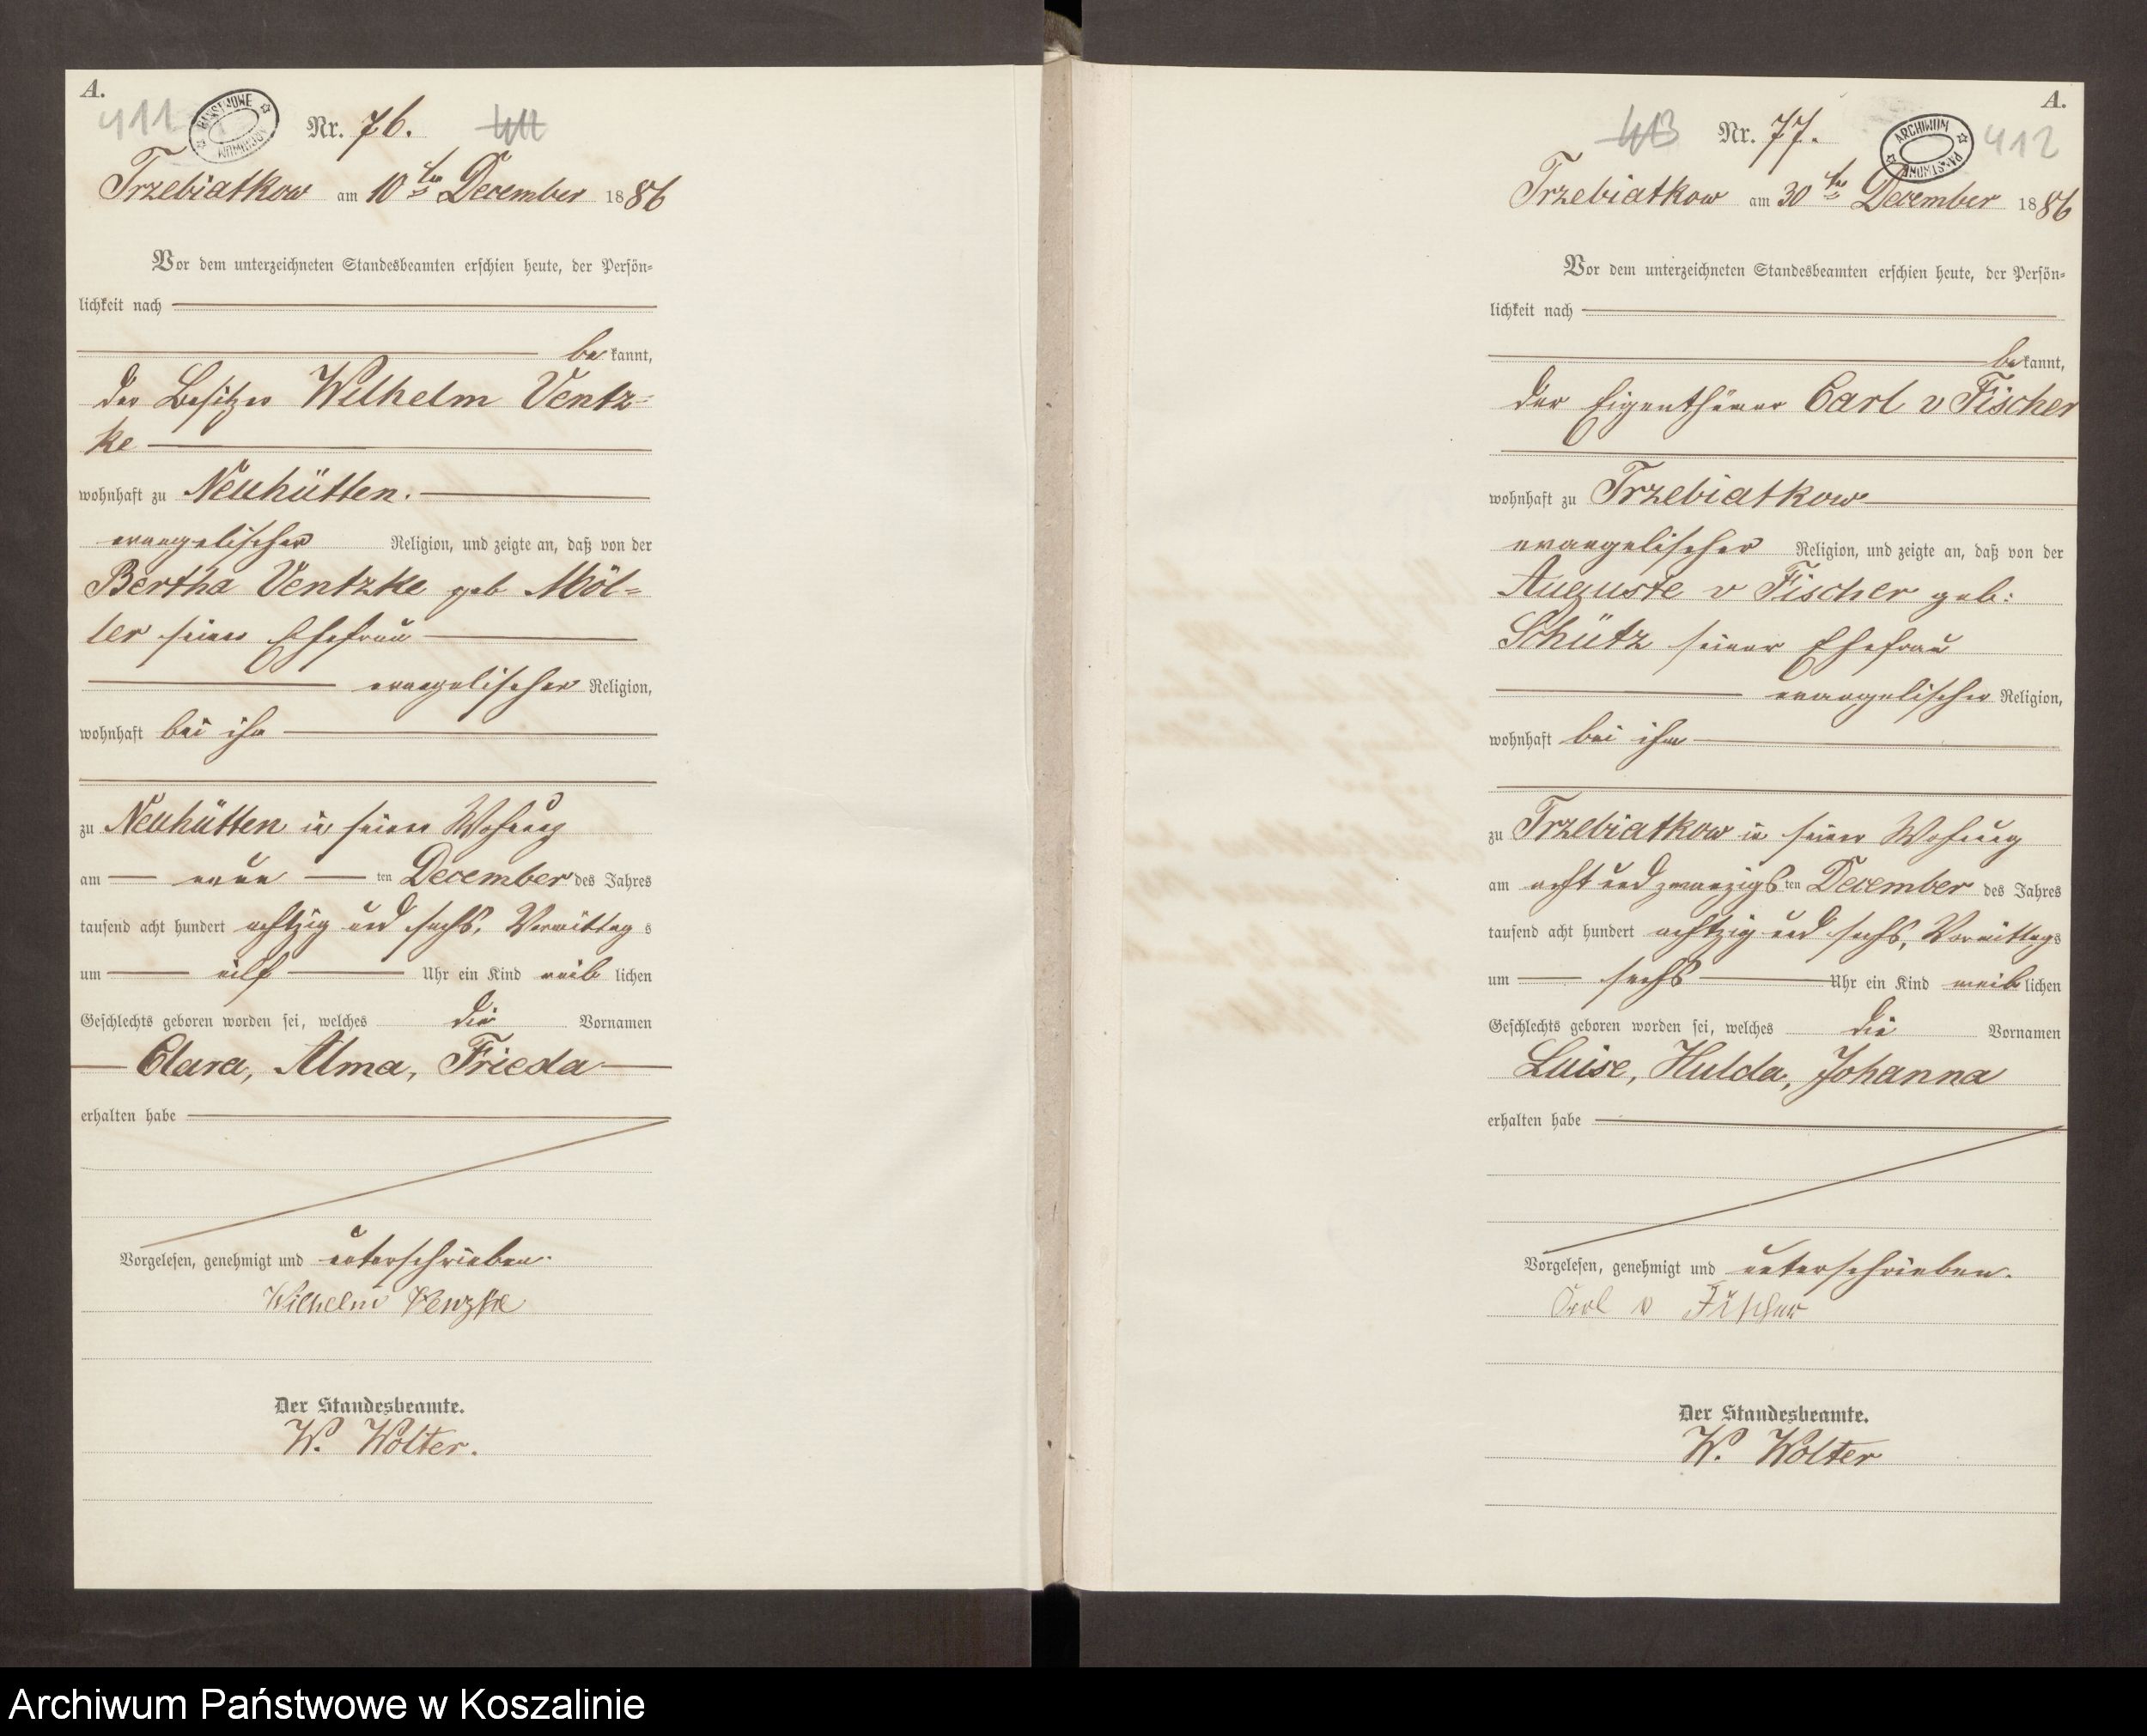 A.
411
PAŃSTWOWE ARCHIWUM
Nr. 76.
412
Trzebiatkow am 10ten December 1886
Vor dem unterzeichneten Standesbeamten erschien heute, der Persön=
lichkeit nach
bekannt,
der Besitzer Wilhelm Ventz=
ke
wohnhaft zu Neuhütten.
evangelischer Religion, und zeigte an, daß von der
Bertha Ventzke geb Möl=
ler seiner Ehefrau
evangelischer Religion,
wohnhaft bei ihm
zu Neuhütten in seiner Wohnung
am neun ten December des Jahres
tausend acht hundert achtzig und sechs, Vormittags
um eilf Uhr ein Kind weiblichen
Geschlechts geboren worden sei, welches die Vornamen
Clara, Alma, Frieda
erhalten habe
Vorgelesen, genehmigt und unterschrieben.
Wilhelm Venzke
Der Standesbeamte.
W. Wolter.
A.
413
Nr. 77.
ARCHIWUM PAŃSTWOWE
412
Trzebiatkow am 30ten December 1886
Vor dem unterzeichneten Standesbeamten erschien heute, der Persön=
lichkeit nach
bekannt,
der Eigenthümer Carl v Fischer
wohnhaft zu Trzebiatkow
evangelischer Religion, und zeigte an, daß von der
Auguste v Fischer geb:
Schütz seiner Ehefrau
evangelischer Religion,
wohnhaft bei ihm
zu Trzebiatkow in seiner Wohnung
am acht und zwanzigsten December des Jahres
tausend acht hundert achtzig und sechs, Vormittags
um sechs Uhr ein Kind weiblichen
Geschlechts geboren worden sei, welches die Vornamen
Luise, Hulda, Johanna
erhalten habe
Vorgelesen, genehmigt und unterschrieben.
Carl v Fischer
Der Standesbeamte.
W. Wolter
Archiwum Państwowe w Koszalinie